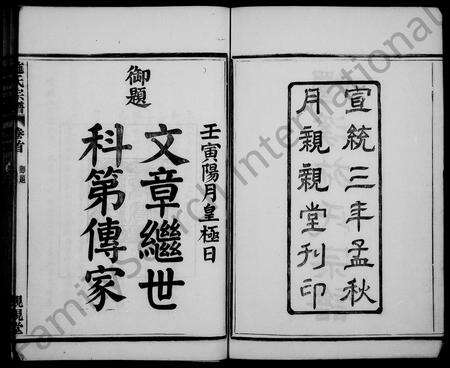 宣統三年孟秋
月親親堂刊印
壬寅陽月皇極日
御題
文章繼世
科第傳家
施氏宗譜 卷首 御題 親親堂
FamilySearch International